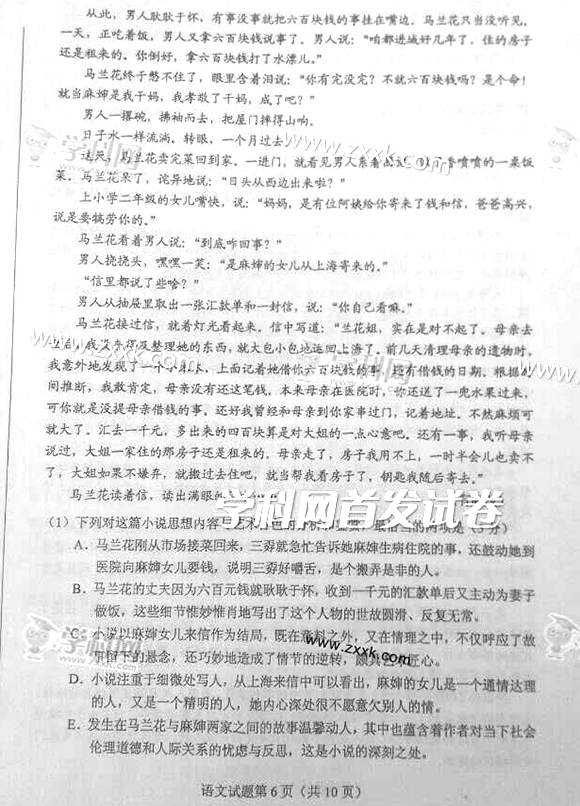 从此，男人耿耿于怀，有事没事就把六百块钱的事挂在嘴边。马兰花只当没听见。
一天，正吃着饭，男人又拿六百块钱说事了。男人说：“咱都进城好几年了，住的房子
还是租来的。你倒好，拿六百块钱打了水漂儿。”
马兰花终于憋不住了，眼里含着泪说：“你有完没完？不就六百块钱吗？是个命！
就当麻婶是我干妈，我孝敬了干妈，成了吧？”
男人一撂碗，拂袖而去，把屋门摔得山响。
日子水一样流淌。转眼，一个月过去
这天，马兰花卖完菜回到家。一进门，就看见男人系着 喷喷的一桌饭
菜。马兰花呆了，诧异地说：“日头从西边出来啦？”
上小学二年级的女儿嘴快，说：“妈妈，是有位阿姨给你寄来了钱和信，爸爸高兴，
说是要犒劳你的。”
马兰花看着男人说：“到底咋回事？”
男人挠挠头，嘿嘿一笑：“是麻婶的女儿从上海寄来的。”
“信里都说了些啥？”
男人从抽屉里取出一张汇款单和一封信，说：“你自己看嘛。”
马兰花接过信，就着灯光看起来。信中写道：“兰花姐，实在是对不起了。母亲去
后，我没来得及整理她的东西，就大包小包地运回上海了。前几天清理母亲的遗物时，
我意外地发现了一个小本本，上面记着她借你六百块钱的事，还有借钱的日期。根据时
间推断，我敢肯定，母亲没有还这笔钱。本来母亲在医院时，你还送了一兜水果过来，
可你就是没提母亲借钱的事。还好我曾经和母亲到你家串过门，记着地址。不然麻烦可
就大了。汇去一千元，多出来的四百块算是对大姐的一点心意吧。还有一事，我听母亲
说过，大姐一家住的那房子还是租来的。母亲走了，房子我用不上，一时半会儿也卖不
了，大姐如果不嫌弃，就搬过去住吧，就当帮我看房子了，钥匙我随后寄去。”
马兰花读着信，读出满眼的
学科网首发试卷
(1) 下列对这篇小说思想内容 最恰当的两项是（5 分）
A．马兰花刚从市场接菜回来，三孬就急忙告诉她麻婶生病住院的事，还鼓动她到
医院向麻婶女儿要钱，说明三孬好嚼舌，是个搬弄是非的人。
B．马兰花的丈夫因为六百元钱就耿耿于怀，收到一千元的汇款单后又主动为妻子
做饭，这些细节惟妙惟肖地写出了这个人物的世故圆滑、反复无常。
C．小说以麻婶女儿来信作为结局，既在意料之外，又在情理之中，不仅呼应了故
事情节上的悬念，还巧妙地造成了情节的逆转，颇具匠心。
D．小说注重于细微处写人，从上海来信中可以看出，麻婶的女儿是一个通情达理
的人，又是一个精明的人，她内心深处很不愿意欠别人的情。
E．发生在马兰花与麻婶两家之间的故事温馨动人，其中也蕴含着作者对当下社会
伦理道德和人际关系的忧虑与反思，这是小说的深刻之处。
语文试题第 6 页（共 10 页）